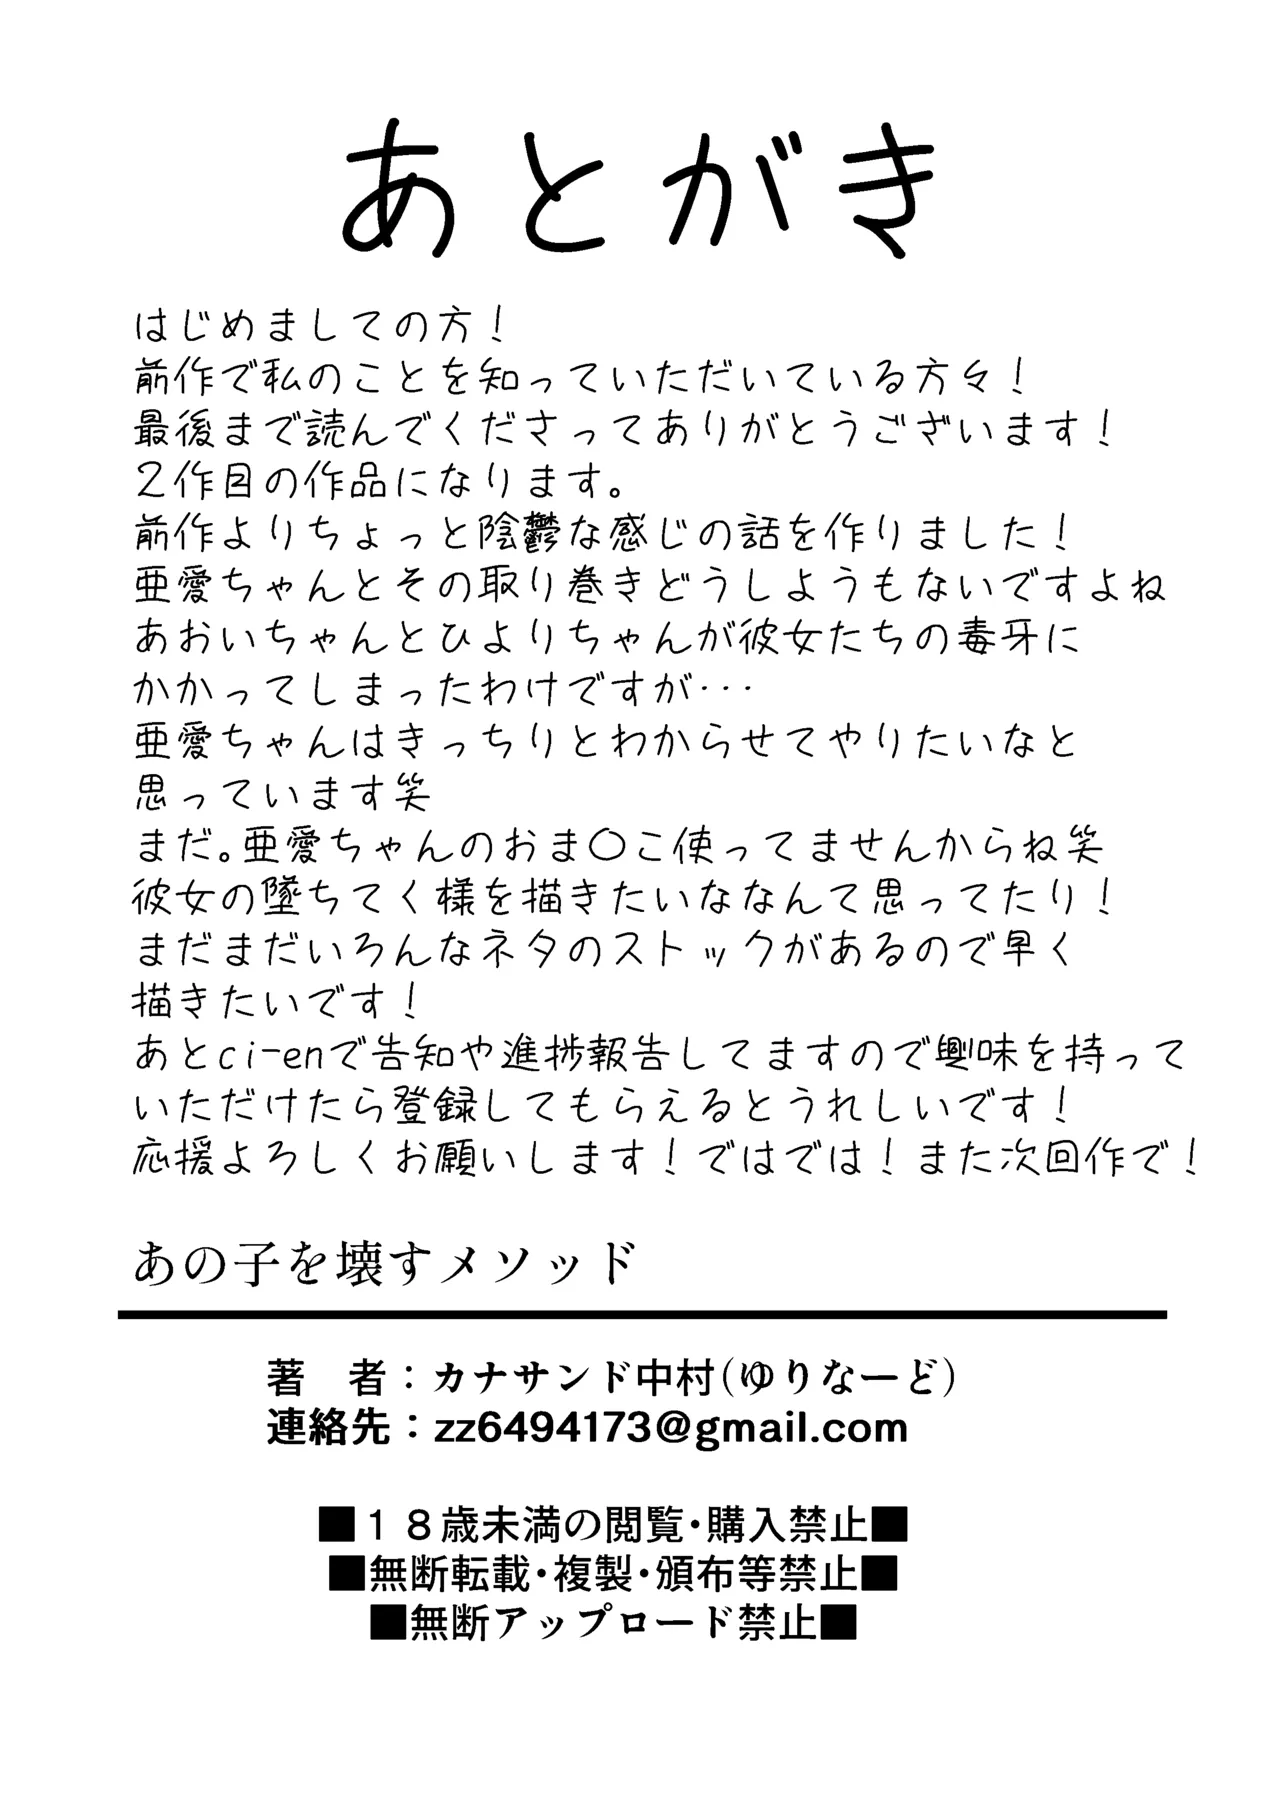 あとがき
はじめましての方！
前作で私のことを知っていただいている方々！
最後まで読んでくださってありがとうございます！
２作目の作品になります。
前作よりちょっと陰鬱な感じの話を作りました！
亜愛ちゃんとその取り巻きどうしようもないですよね
あおいちゃんとひよりちゃんが彼女たちの毒牙に
かかってしまったわけですが･･･
亜愛ちゃんはきっちりとわからせてやりたいなと
思っています笑
まだ。亜愛ちゃんのおま〇こ使ってませんからね笑
彼女の墜ちてく様を描きたいななんて思ってたり！
まだまだいろんなネタのストックがあるので早く
描きたいです！
あとci-enで告知や進捗報告してますので興味を持って
いただけたら登録してもらえるとうれしいです！
応援よろしくお願いします！ではでは！また次回作で！
あの子を壊すメソッド
著　者：カナサンド中村(ゆりなーど)
連絡先：zz6494173@gmail.com
■１８歳未満の閲覧･購入禁止■
■無断転載･複製･頒布等禁止■
■無断アップロード禁止■